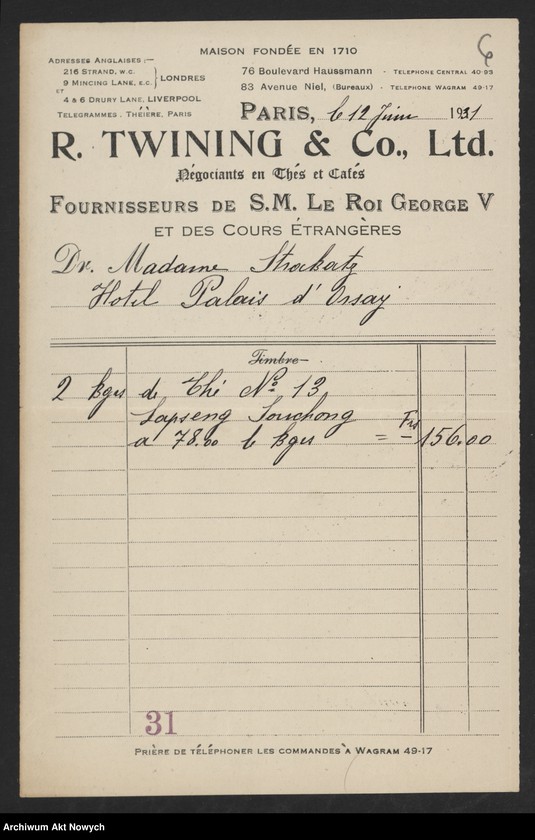 MAISON FONDÉE EN 1710
6
ADRESSES ANGLAISES :—
216 STRAND, W.C.
9 MINCING LANE, E.C. } LONDRES
ET
4 & 6 DRURY LANE, LIVERPOOL
TELEGRAMMES . THÉIÈRE, PARIS
76 Boulevard Haussmann - TELEPHONE CENTRAL 40-93
83 Avenue Niel, (Bureaux) - TELEPHONE WAGRAM 49-17
PARIS, le 12 Juin 1931
R. TWINING & Co., Ltd.
Négociants en Thés et Cafés
FOURNISSEURS DE S.M. LE ROI GEORGE V
ET DES COURS ÉTRANGÈRES
Dr. Madame
Hotel Palais d'Orsay
Timbre
2 kgrs de Thé No 13
Lapseng Souchong
a 78.00 le kgr = Frs 156.00
31
PRIÈRE DE TÉLÉPHONER LES COMMANDES À WAGRAM 49-17
Archiwum Akt Nowych